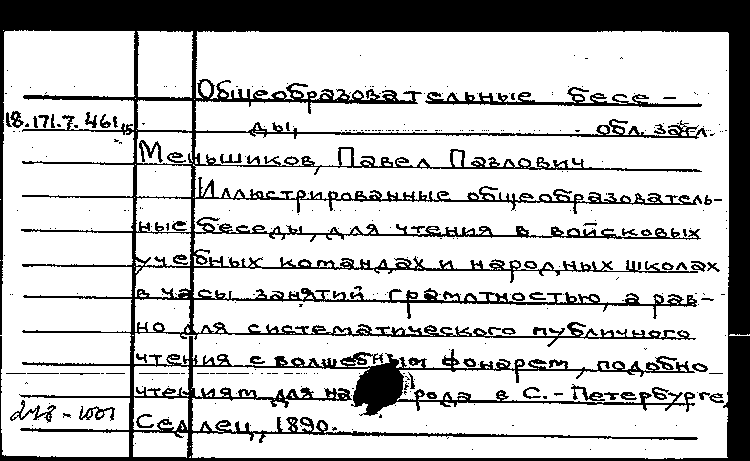 Общеобразовательные бесе-
18.171.7.461,15 ды, обл. загл.
Меньшиков, Павел Павлович
Иллюстрированные общеобразователь-
ные беседы, для чтения в войсковых
учебных командах и народных школах
в часы занятий грамотностью, а рав-
но для систематического публичного
чтения с волшебным фонарем, подобно
чтениям для народа в С.-Петербурге,
Седлец, 1890.